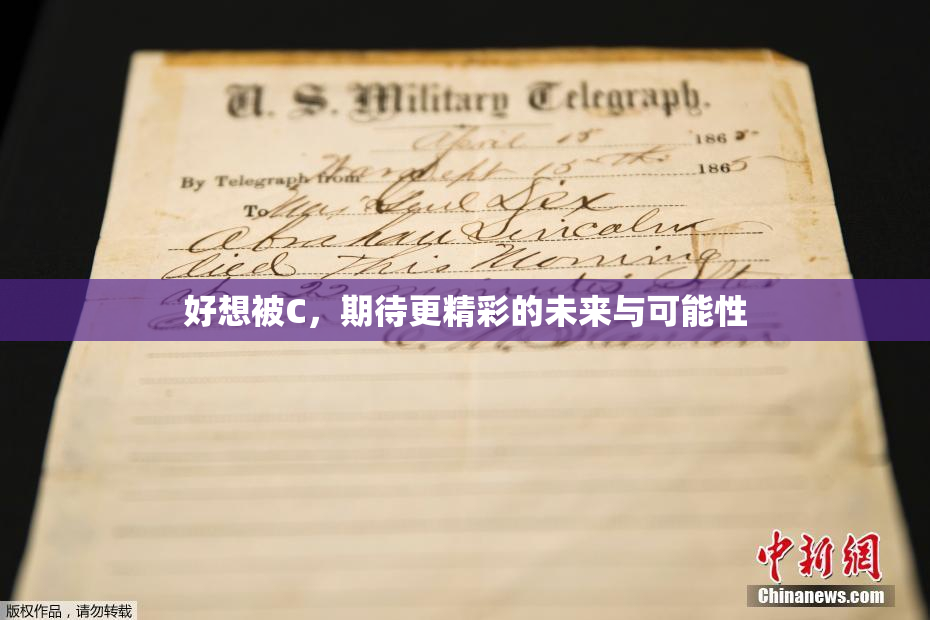 U. S. Military Telegraph.
April 15 1865
By Telegraph from War Dept 15th 1865
To Maj Genl Dix
Abraham Lincoln
died This Morning
at 22 minutes after
好想被C，期待更精彩的未来与可能性
E. M. Stanton
中新網
Chinanews.com
版权作品，请勿转载